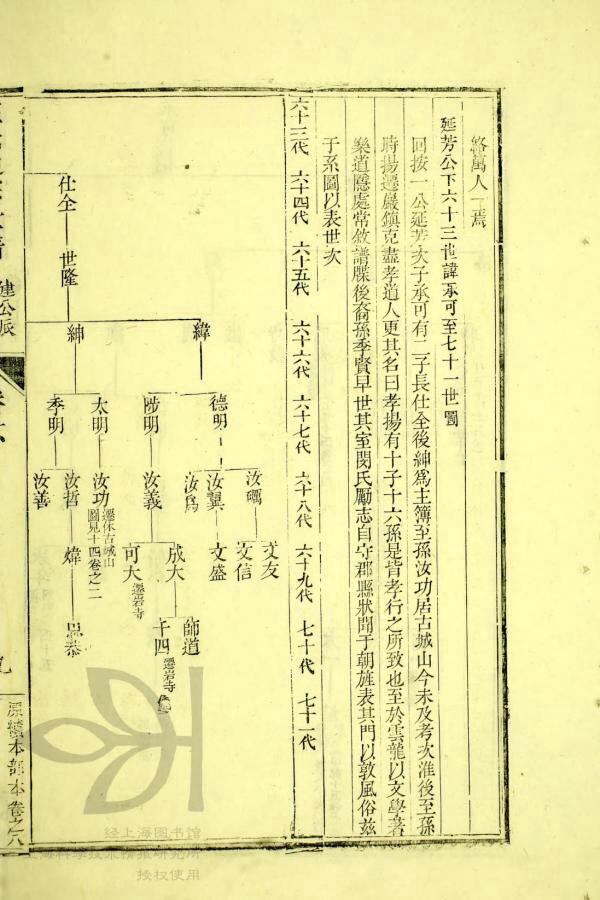 絡萬人一焉
延芳公下六十三世諱承可至七十一世圖
回按一公延芳次子承可有二子長仕全後紳爲主簿至孫汝功居古城山今未及考次淮後至孫
時揚遷巖鎮克盡孝道人更其名曰孝揚有十子十六孫是皆孝行之所致也至於雲龍以文學著
樂道隱處常敘譜牒後裔孫季賢早世其室閔氏勵志自守郡縣狀聞于朝旌表其門以敦風俗兹
于系圖以表世次
六十三代 六十四代 六十五代 六十六代 六十七代 六十八代 六十九代 七十代 七十一代
汝礪 文友
文信
緯 德明 汝翼 文盛
汝爲
成大 師道
十四 遷岩寺
陟明 汝義 可大 遷岩寺
仕全 世隆
太明 汝功 遷休古城山
圖見十四卷之二
紳 季明 汝哲 煒
汝善
建公派
原續本部本卷之八
经上海图书馆
上海科学技术情报研究所
授权使用